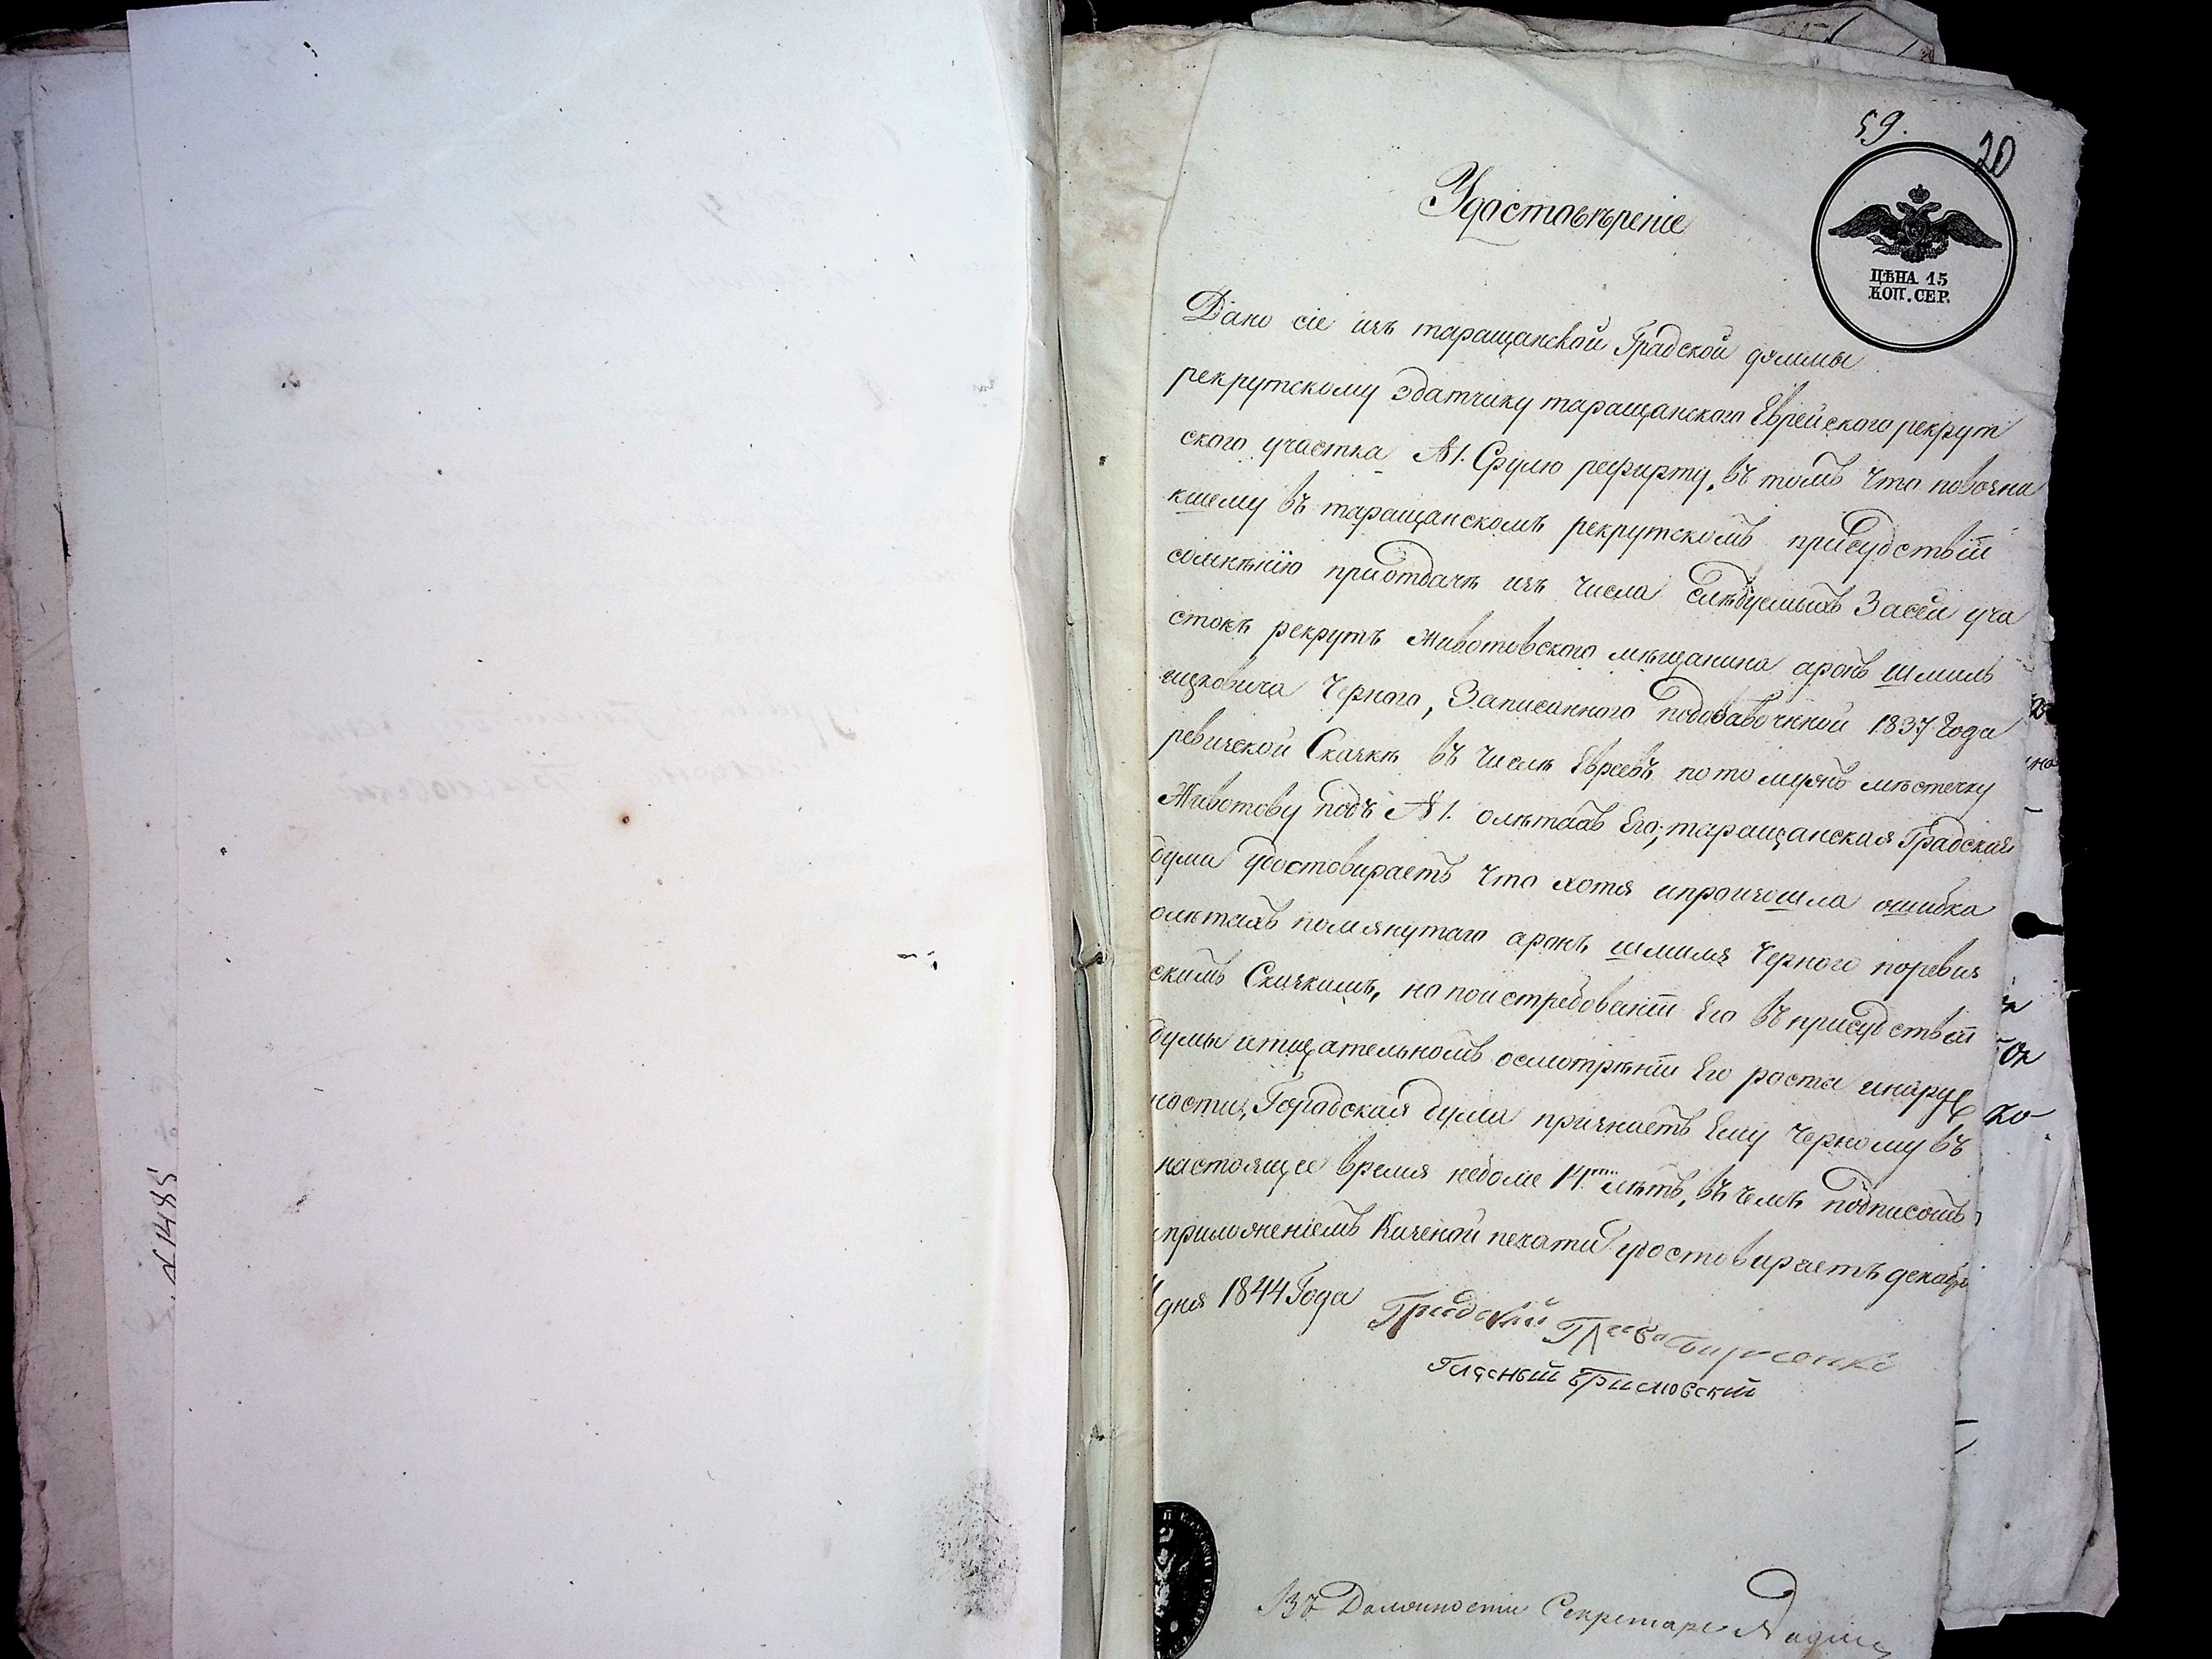 59.
20
ЦѢНА 15
КОП. СЕР.
Удостовѣреніе
Дано сіе изъ таращанской Градской думы
рекрутскому здатчику таращанского Еврейского рекрут
ского участка №1. Срулю рефирту, въ томъ что повозни
кшему въ таращанскомъ рекрутскомъ присудствіи
сомнѣнію приотдачѣ изъ числа слѣдуемыхъ Засей уча
стокъ рекрутъ Животовского мѣщанина аронъ шмиль
ицковича Черного, Записанного подобавочнной 1837 Года
ревизской Сказкѣ въ числѣ Евреевъ потомужъ мѣстечку
Животову подъ №1. олѣтахъ Его; таращанская Градская
дума удостовираетъ что хотя ипроизошла ошибка
олѣтахъ помянутаго аронъ шмиля Черного поревиз
скимъ Сказкамъ, но поистребованіи Его въ присудствіи
думы итщательномъ осмотрѣніи Его роста инаруж
ности, Городская дума признаетъ Ему Черному въ
настоящее время неболе 14ти лѣтъ, въ чемъ подписомъ
приложеніемъ Казеной печати удостовираетъ декабря
дня 1844 Года
Градский Глава
Гласный
Въ Должности Секретаря
№1485